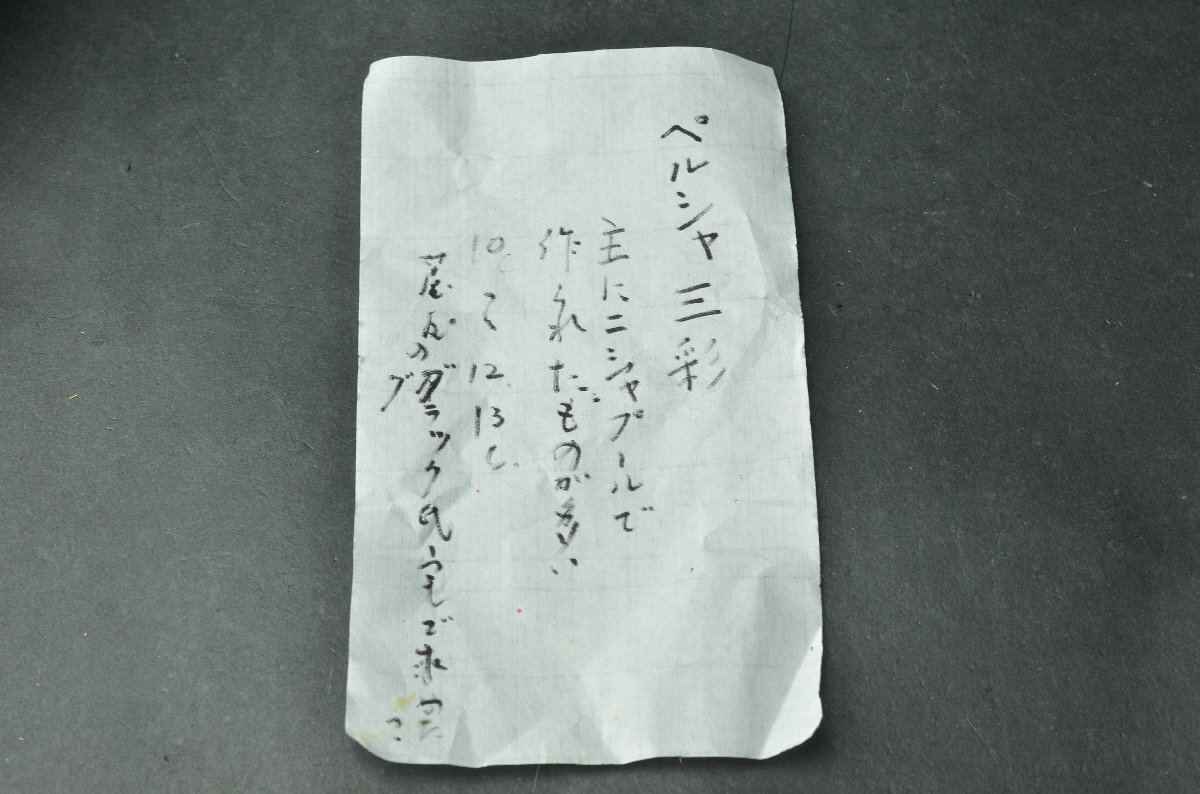 ペルシャ三彩
主にニシャプールで
作れたものが多い
10c
12、13c
のブラック氏宅で求めた